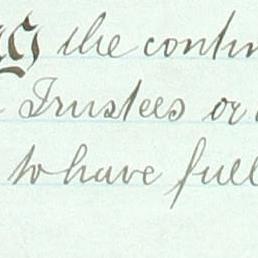 the contin
Trustees or
to have full